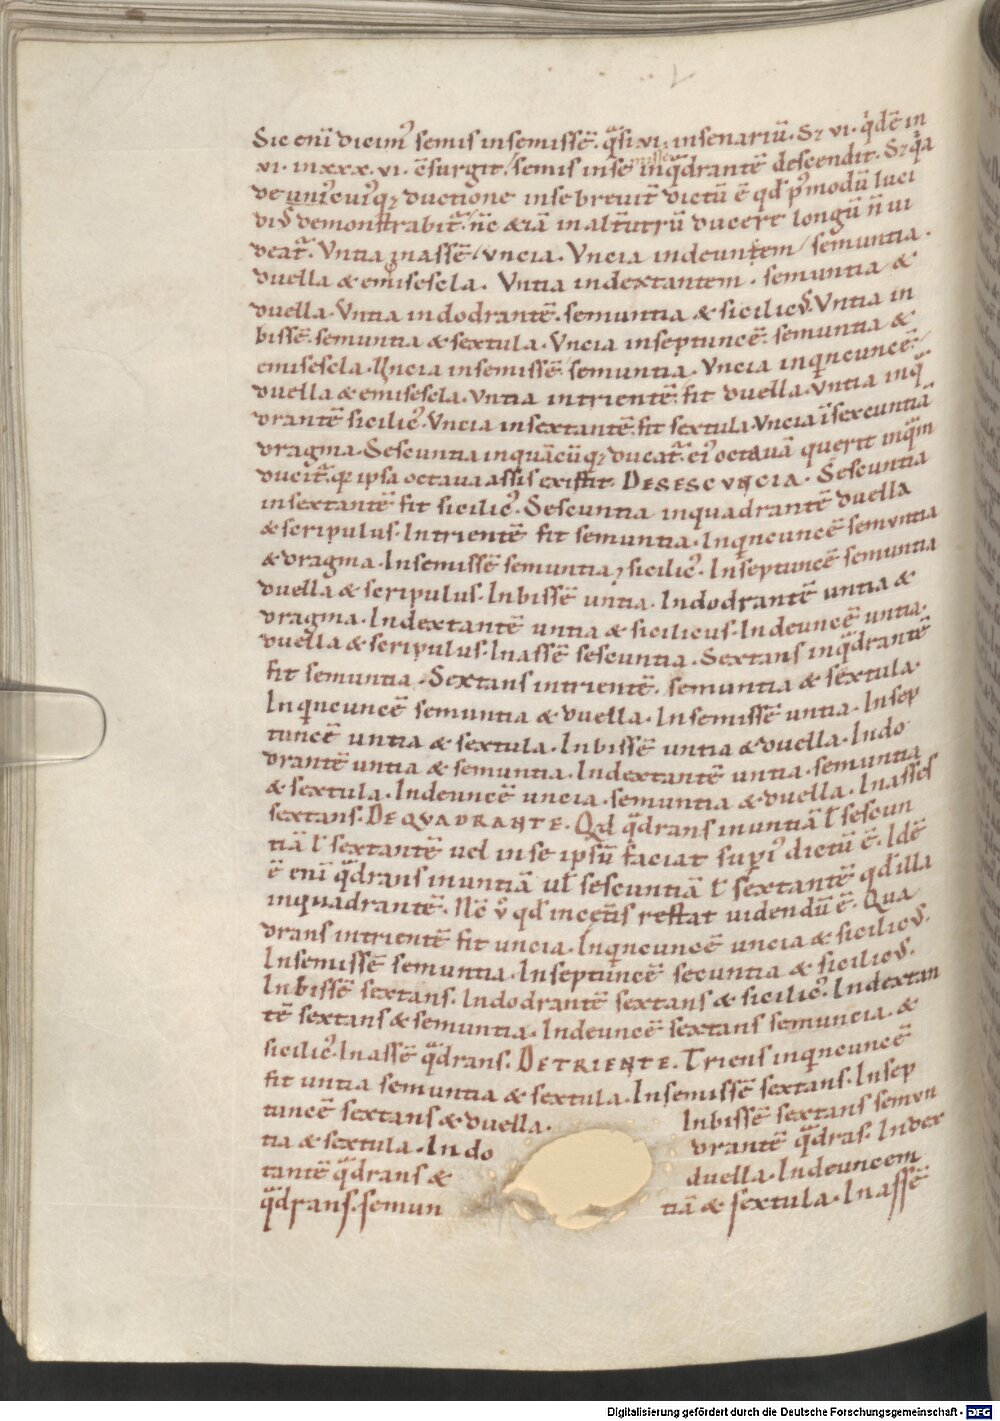 Sic eni̅ dicim᾽ semis insemisse̅. q̅si·vi· insenariu̅. S; vi· q̇de̅ in
xi· inxxx·vi· c̅surgit / semis inse misse̅ inq̅drante̅ descendit. S; q̇a
de uni᾽cui᾽q; ductione inse breuit̅ dictu̅ e̅ qd̅ p᾽modu̅ luci
di᾽ demonstrabit᷒. n̅c &ia̅ in alt̅utru̅ ducere longu̅ n̅ ui
deat᷒. Vntia inasse̅ / vncia. Vncia indeuntem / semuntia.
duella & emisescla. Vntia indextantem. semuntia &
duella. Vntia indodrante̅. semuntia & sicilic᾽. Vntia in
bisse̅. semuntia & sextula. Vncia inseptunce̅. semuntia &
emisescla. Vncia insemisse̅ / semuntia. Vncia inqncunce̅ /
duella & emisescla. Vntia intriente̅ fit duella. Vntia inq̅
drante̅ sicilic᾽. Vncia insextante̅ fit sextula. Vncia i̅sexcuntia̅
dragma. Sescuntia inqua̅cu̅q; ducat᷒. ei᾽ octaua̅ querit inq̅m
ducit᷒. q; ipsa octaua assis existit. DESESCVNCIA. Sescuntia
insextante̅ fit sicilic᾽. Sescuntia inquadrante̅ duella
& scripulus. Intriente̅ fit semuntia. Inqncunce̅ semvntia
& dragma. Insemisse̅ semuntia, sicilic᾽. Inseptunce̅ semuntia
duella & scripulus. Inbisse̅ untia. Indodrante̅ untia &
dragma. Indextante̅ untia & sicilicus. Indeunce̅ untia.
duella & scripulus. Inasse̅ sescuntia. Sextans inq̅drante̅
fit semuntia. Sextans intriente̅. semuntia & sextula.
Inqncunce̅ semuntia & duella. Insemisse̅ untia. Insep
tunce̅ untia & sextula. Inbisse̅ untia & duella. Indo
drante̅ untia & semuntia. Indextante̅ untia. semuntia
& sextula. Indeunce̅ uncia. semuntia & duella. Inasses
sextans. DEQVADRANTE. Qd̅ q̅drans inuntia̅ ł sescun
tia̅ ł sextante̅ uel inse ipsu̅ faciat sup᾽ dictu̅ e̅. Ide̅
e̅ eni̅ q̅drans inuntia̅ uł sescuntia̅ ł sextante̅ qd̅ illa
inquadrante̅. Nc̅ v᾽ qd̅ incęt̅is restat uidendu̅ e̅. Qua
drans intriente̅ fit uncia. Inqncunce̅ uncia & sicilic᾽.
Insemisse̅ semuntia. Inseptunce̅ secuntia & sicilic᾽.
Inbisse̅ sextans. Indodrante̅ sextans & sicilic᾽. Indextan
te̅ sextans & semuntia. Indeunce̅ sextans semuncia. &
sicilic᾽. Inasse̅ q̅drans. DETRIENTE. Triens inqncunce̅
fit untia semuntia & sextula. Insemisse̅ sextans. Insep
tunce̅ sextans & duella. Inbisse̅ sextans semvn
tia & sextula. Indo drante̅ q̅dras. Index
tante̅ q̅drans & duella. Indeuncem
q̅drans. semun tia̅ & sextula. Inasse̅
Digitalisierung gefördert durch die Deutsche Forschungsgemeinschaft - DFG